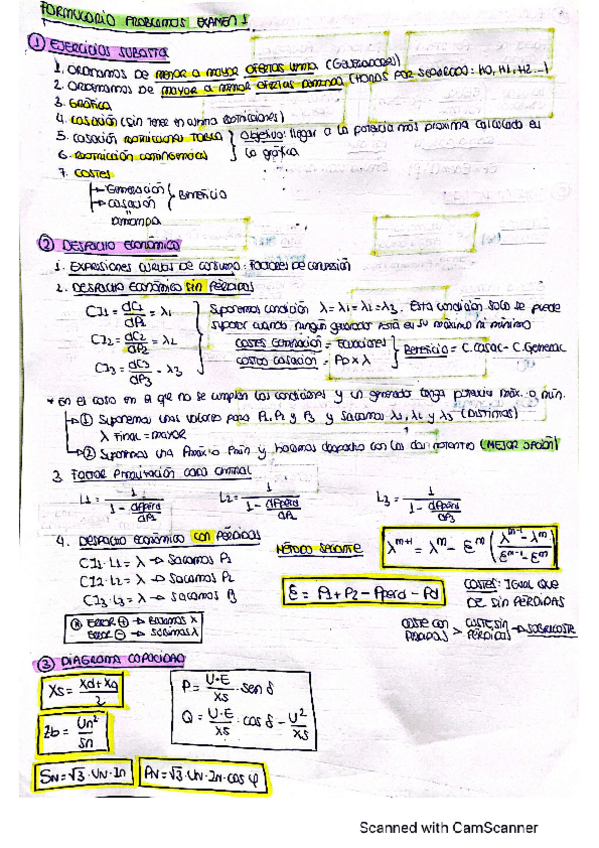 FORMULARIO PROBLEMAS EXAMEN 1
① EJERCICIOS SUBASTA
1. ORDENAMOS DE menor a mayor OFERTAS VENTA (GENERADORES)
2. ORDENAMOS DE mayor a menor OFERTAS DEMANDA (HORAS POR SEPARADO: H0, H1, H2...)
3. GRÁFICA
4. CASACIÓN (sin tener en cuenta RESTRICCIONES)
5. CASACIÓN RESTRICCIONES TOMA } Objetivo: llegar a la potencia más próxima calculada en
6. RESTRICCIÓN CONTINGENCIAS } la gráfica
7. COSTES
→ Generación } Beneficio
→ CASACIÓN
"
DEMANDA
② DESPACHO ECONÓMICO
1. EXPRESIONES CURVAS DE CONSUMO: FACTORES DE CONVERSIÓN
2. DESPACHO ECONÓMICO sin PÉRDIDAS
CI1 = dC1/dP1 = λ1
CI2 = dC2/dP2 = λ2
CI3 = dC3/dP3 = λ3
Suponemos condición λ = λ1 = λ2 = λ3. Esta condición solo se puede
suponer cuando ningún generador está en su máximo ni mínimo
COSTES GENERACIÓN = ECUACIONES } Beneficio = C.casac - C.Generac
COSTES CASACIÓN = PD × λ
* en el caso en el que no se cumplan las condiciones y un generador tenga potencia máx. o mín.
→ ① Suponemos unos valores para P1, P2 y P3 y sacamos λ1, λ2 y λ3 (DISTINTOS)
λ FINAL = mayor
→ ② Suponemos una Pmáx o Pmín y hacemos despacho con las dos potencias (MEJOR OPCIÓN)
3. FACTOR PENALIZACIÓN CADA CENTRAL
L1 = 1/(1 - dPperd/dP1) L2 = 1/(1 - dPperd/dP2) L3 = 1/(1 - dPperd/dP3)
4. DESPACHO ECONÓMICO con PÉRDIDAS
CI1·L1 = λ → Sacamos P1
CI2·L2 = λ → Sacamos P2
CI3·L3 = λ → Sacamos P3
MÉTODO SECANTE
λ^m+1 = λ^m - Ɛ^m (λ^m-1 - λ^m / Ɛ^m-1 - Ɛ^m)
Ɛ = P1 + P2 - Pperd - Pd
COSTES: IGUAL QUE
DE SIN PÉRDIDAS
COSTE CON PÉRDIDAS > COSTE SIN PÉRDIDAS → SOBRECOSTE
ERROR ⊕ → BAJAMOS λ
ERROR ⊖ → SUBIMOS λ
③ DIAGRAMA CAPACIDAD
Xs = Xd+Xq/2
P = U·E/Xs · sen δ
Zb = Un²/Sn
Q = U·E/Xs · cos δ - U²/Xs
SN = √3·UN·In
PN = √3·UN·In·cos φ
Scanned with CamScanner